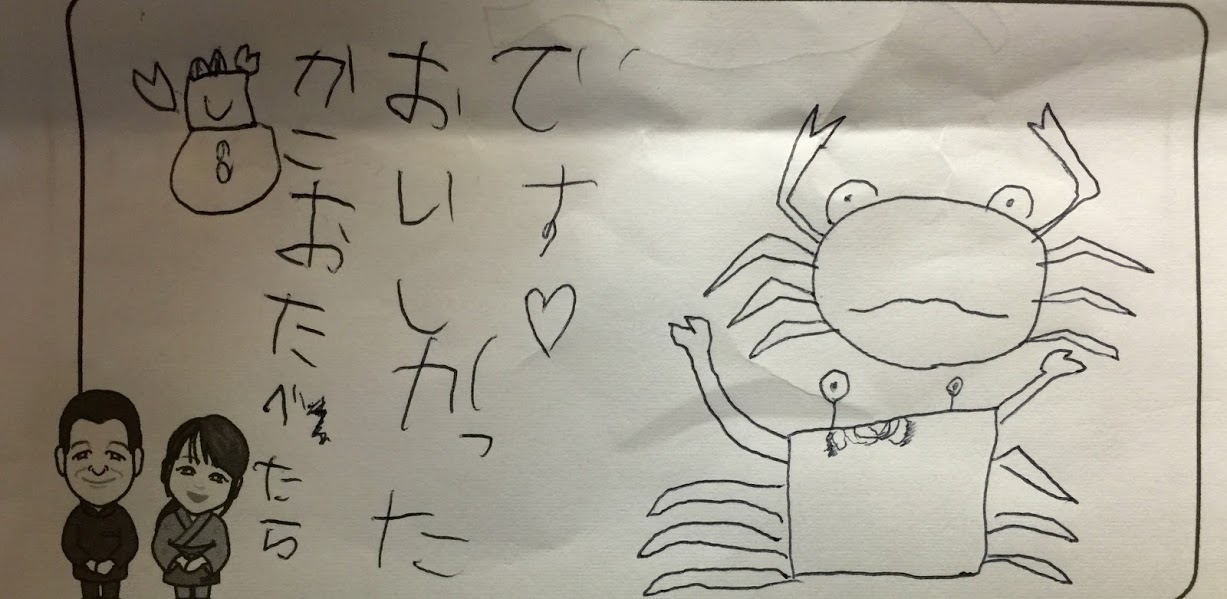 かにおたべたら
おいしかった
です♡